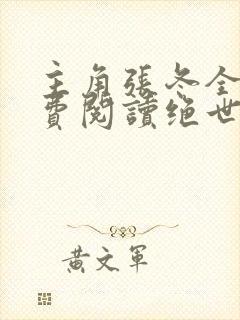 主角張冬全
費閱讀绝世
黃文軍